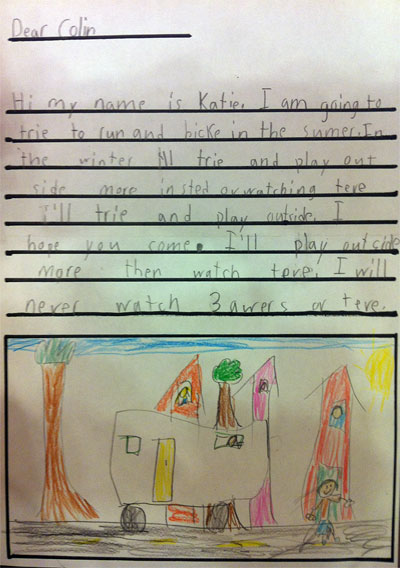 Dear Colin
Hi my name is Katie. I am going to
trie to run and bicke in the sumer. In
the winter I'll trie and play out
side more in sted or watching teve
I'll trie and play outside. I
hope you come. I'll play outside
more then watch teve. I will
never watch 3 awers or teve.